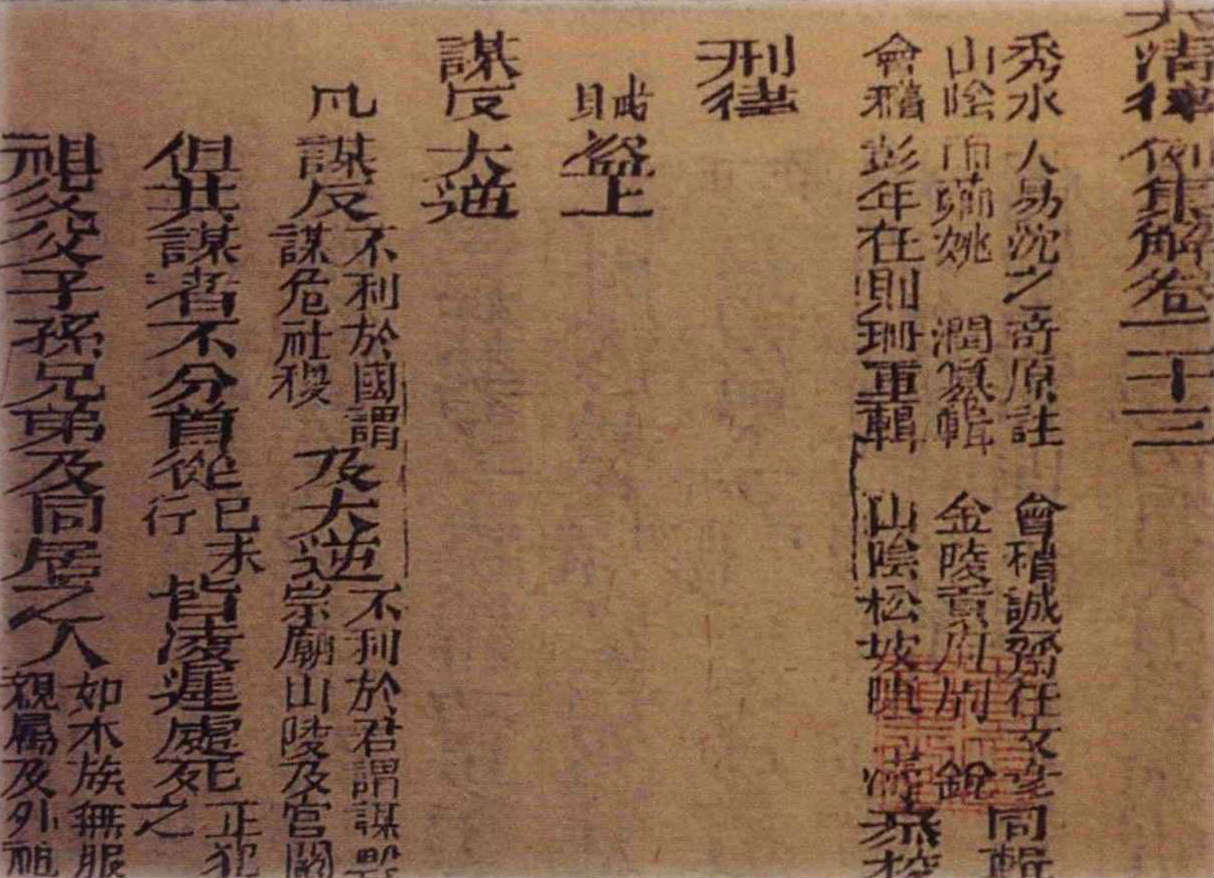 大清律例集解卷二十三
秀水 人易沈之奇原註 會稽誠齋任文 同輯
山陰 姚 潤纂輯 金陵 銓
會稽 彭年在則珊重輯 山陰松坡 參校
刑律
賊盜上
謀反大逆
凡謀反不利於國謂謀危社稷及大逆不利於君謂謀毀宗廟山陵及宮闕
但共謀者不分首從已未行皆凌遲處死正犯之
祖父父子孫兄弟及同居之人如本族無服親屬及外祖